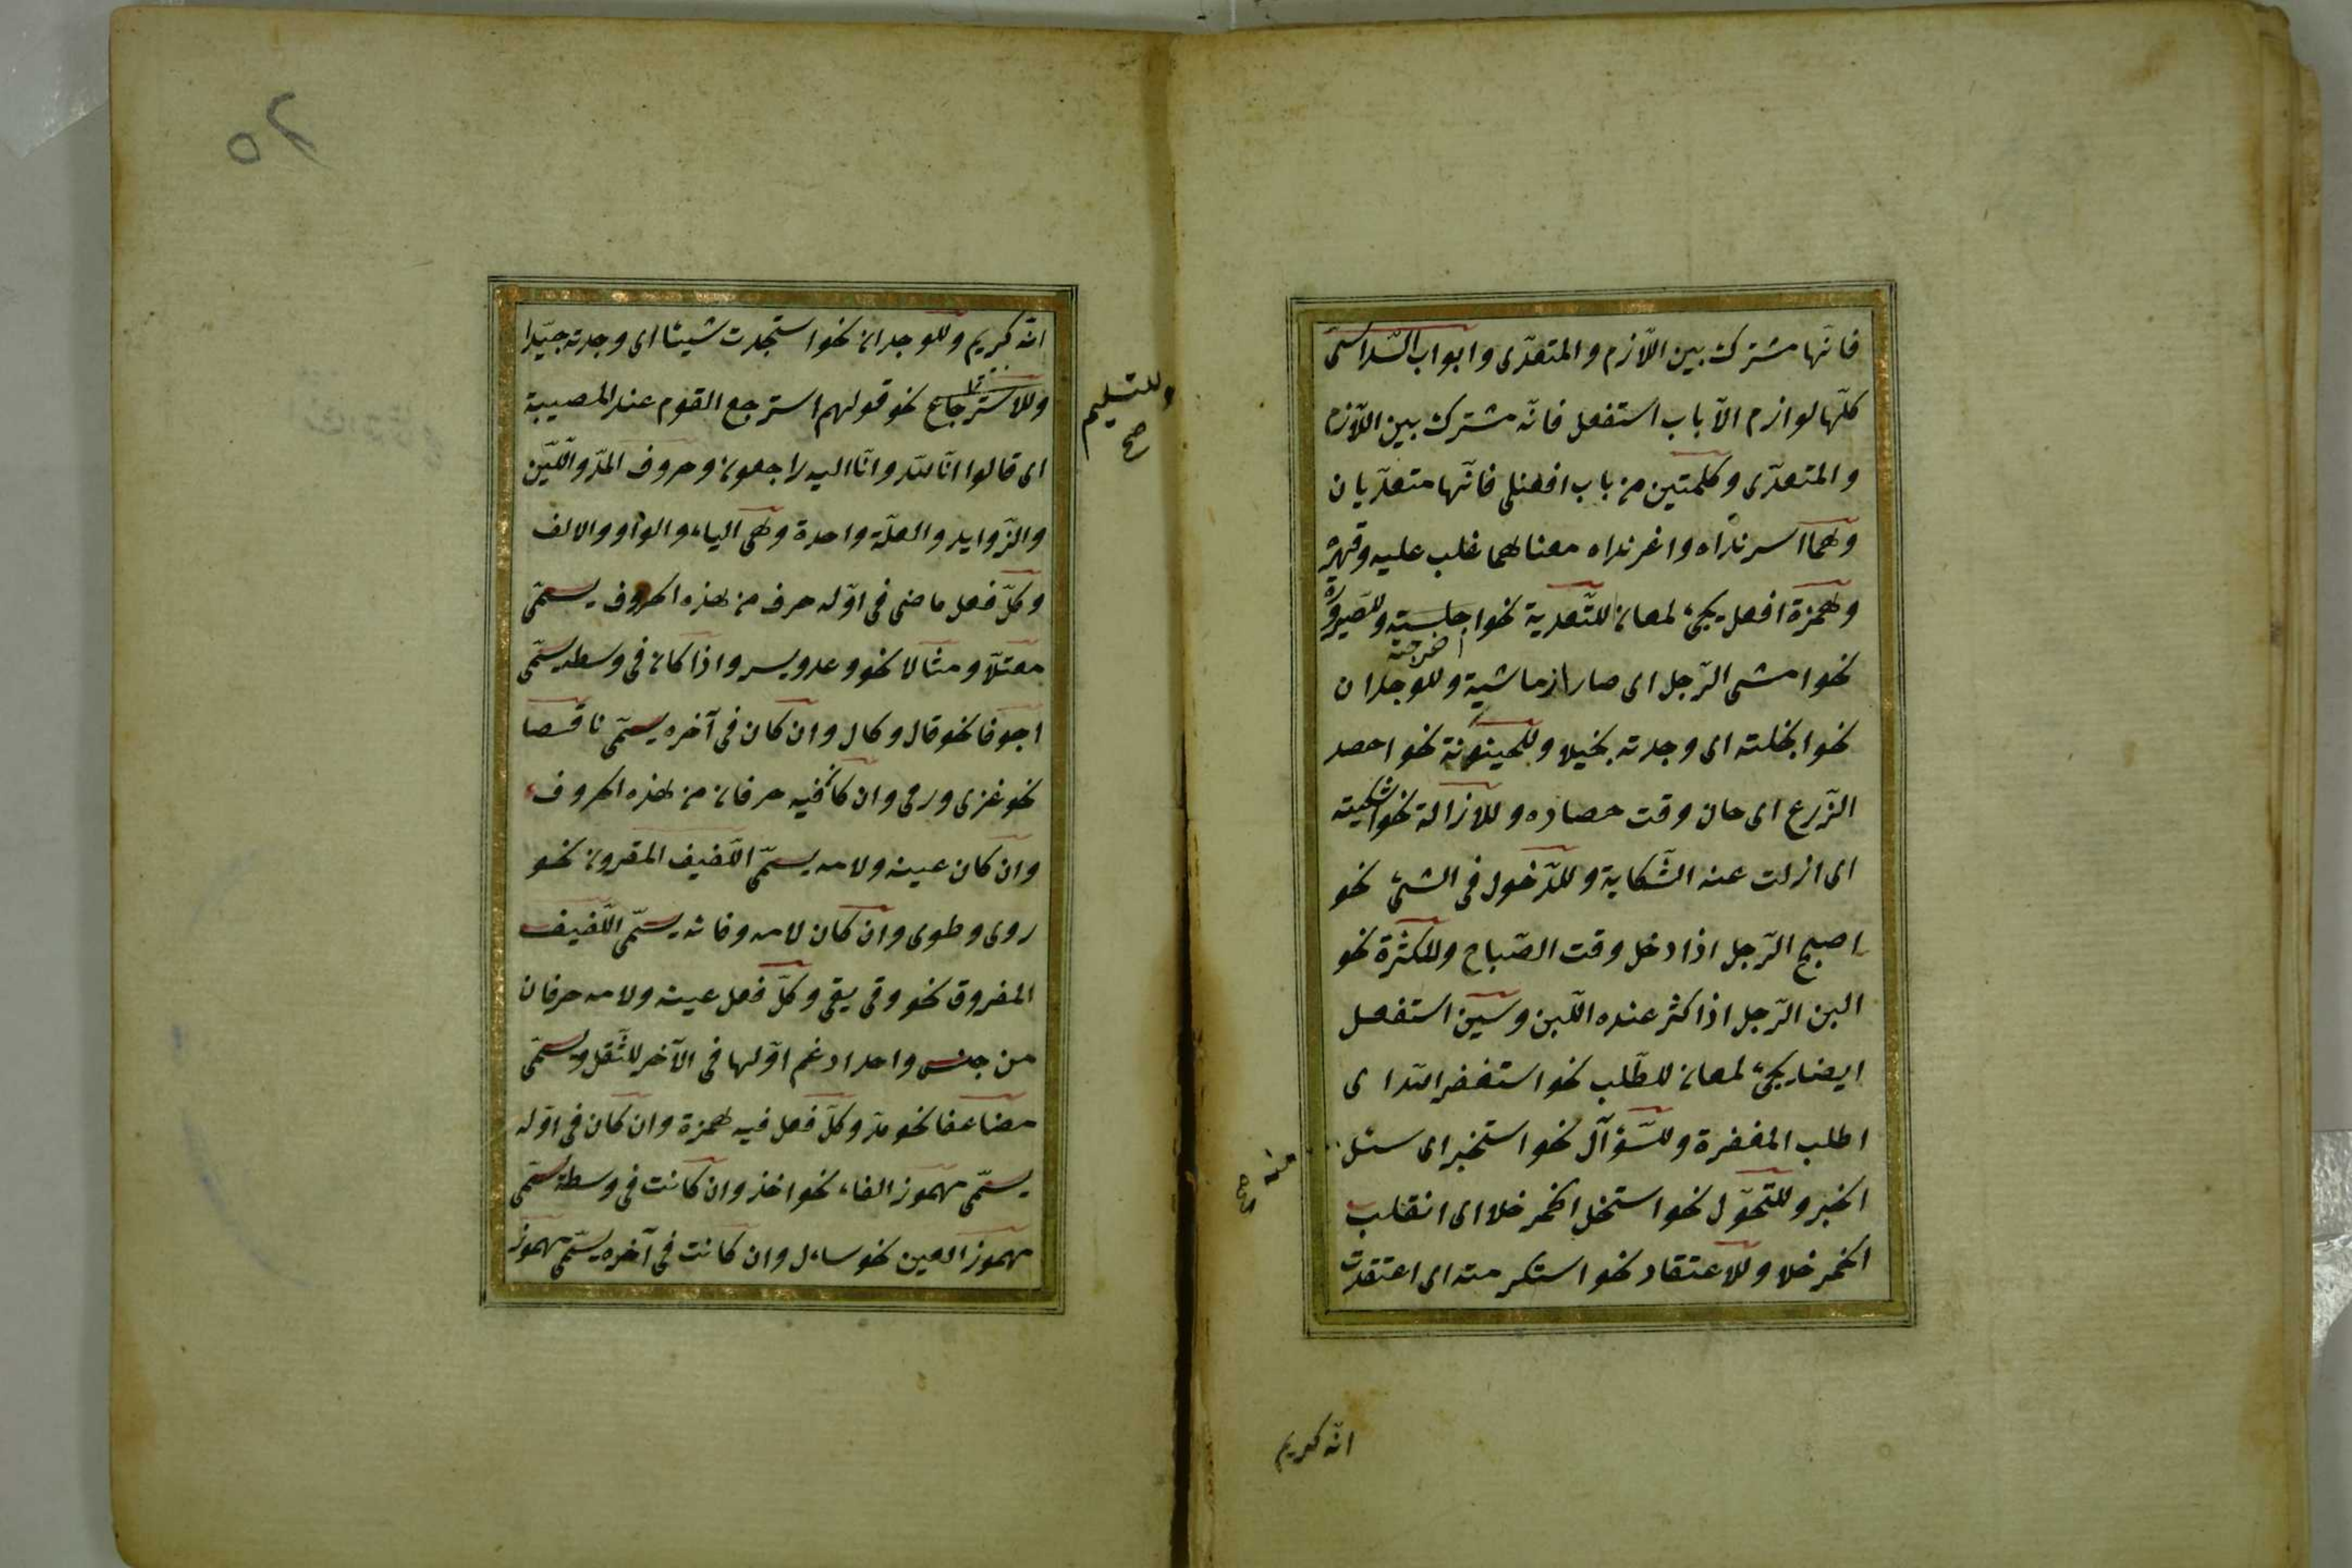 فانّها مشترك بين اللّازم والمتعدّى وابواب السّداسى
كلّها لوازم الّا باب استفعل فانّه مشترك بين اللّازم
والمتعدّى وكلمتين من باب افعنلى فانّهما متعدّيان
وهما اسرنداه واغرنداه معناهما غلب عليه وقهره
وهمزة افعل يجىء لمعان للتّعدية نحو اجلسته وللصّيرورة
اخرجته
نحو امشى الرّجل اى صار ازماشية وللوجدان
نحو ابخلته اى وجدته بخيلا وللحينونة نحو احصد
الزّرع اى حان وقت حصاده وللازالة نحو اشكيته
اى ازلت عنه الشّكاية وللدّخول فى الشىء نحو
اصبح الرّجل اذا دخل وقت الصّباح وللكثرة نحو
البن الرّجل اذا كثر عنده اللّبن وسين استفعل
ايضا يجىء لمعان للطّلب نحو استغفر الله اى
اطلب المغفرة وللسّؤآل نحو استخبر اى سئل
منه صح
الخبر وللتّحوّل نحو استخل الخمر خلا اى انقلب
الخمر خلا وللاعتقاد نحو استكرمته اى اعتقدت
انّه كريم
20
انّه كريم وللوجدان نحو استجدت شيئا اى وجدته جيّدا
وللاسترجاع نحو قولهم استرجع القوم عند المصيبة
وللتسليم صح
اى قالوا انّا لله وانّا اليه راجعون وحروف المدّ واللّين
والزّوايد والعلّة واحدة وهى الياء والواو والالف
وكلّ فعل ماضى فى اوّله حرف من هذه الحروف يسمّى
معتلّا ومثالا نحو وعد ويسر واذا كان فى وسطه يسمّى
اجوفا نحو قال وكال وان كان فى آخره يسمّى ناقصا
نحو غزى ورمى وان كان فيه حرفان من هذه الحروف
وان كان عينه ولامه يسمّى اللّفيف المقرون نحو
روى وطوى وان كان لامه وفائه يسمّى اللّفيف
المفروق نحو وقى يقى وكلّ فعل عينه ولامه حرفان
من جنس واحد ادغم اوّلها فى الآخر للثّقل ويسمّى
مضاعفا نحو مدّ وكلّ فعل فيه همزة وان كان فى اوّله
يسمّى مهموز الفاء نحو اخذ وان كانت فى وسطه يسمّى
مهموز العين نحو ساءل وان كانت فى آخره يسمّى مهموز